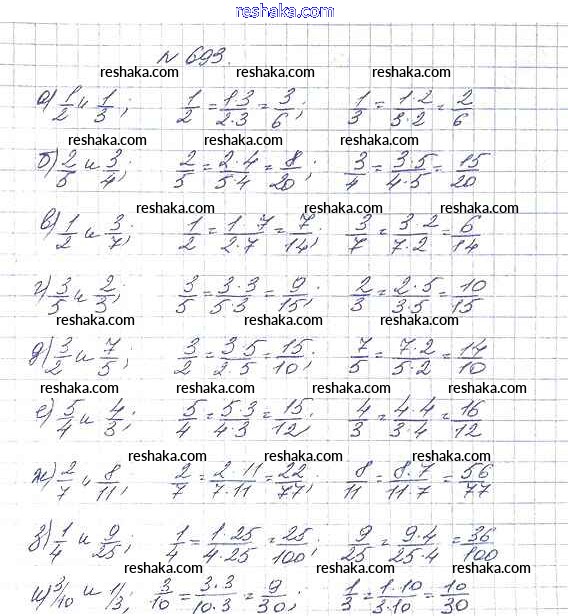 reshaka.com
№ 693.
reshaka.com reshaka.com reshaka.com
а) 1/2 и 1/3; 1/2 = 1·3/2·3 = 3/6; 1/3 = 1·2/3·2 = 2/6
reshaka.com reshaka.com reshaka.com
б) 2/5 и 3/4; 2/5 = 2·4/5·4 = 8/20; 3/4 = 3·5/4·5 = 15/20
reshaka.com reshaka.com reshaka.com
в) 1/2 и 3/7; 1/2 = 1·7/2·7 = 7/14; 3/7 = 3·2/7·2 = 6/14
reshaka.com reshaka.com reshaka.com
г) 3/5 и 2/3; 3/5 = 3·3/5·3 = 9/15; 2/3 = 2·5/3·5 = 10/15
reshaka.com reshaka.com reshaka.com
д) 3/2 и 7/5; 3/2 = 3·5/2·5 = 15/10; 7/5 = 7·2/5·2 = 14/10
reshaka.com reshaka.com reshaka.com
е) 5/4 и 4/3; 5/4 = 5·3/4·3 = 15/12; 4/3 = 4·4/3·4 = 16/12
reshaka.com reshaka.com reshaka.com
ж) 2/7 и 8/11; 2/7 = 2·11/7·11 = 22/77; 8/11 = 8·7/11·7 = 56/77
reshaka.com reshaka.com reshaka.com
з) 1/4 и 9/25; 1/4 = 1·25/4·25 = 25/100; 9/25 = 9·4/25·4 = 36/100
reshaka.com reshaka.com reshaka.com
и) 3/10 и 1/3; 3/10 = 3·3/10·3 = 9/30; 1/3 = 1·10/3·10 = 10/30